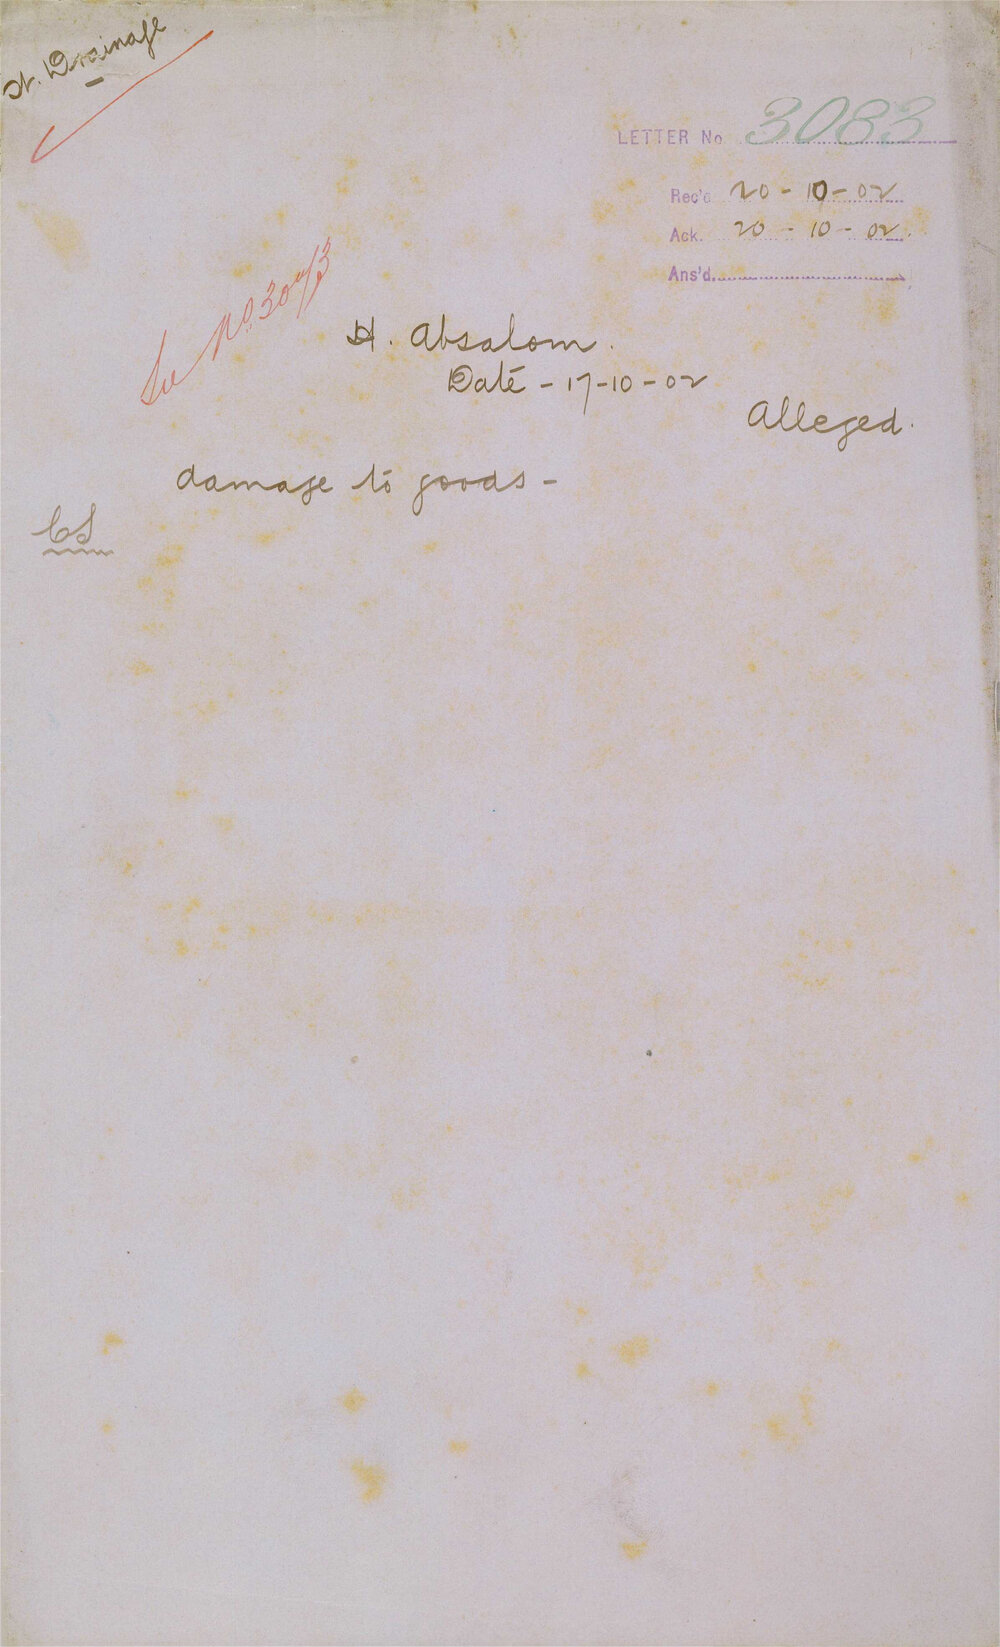 Drainage
LETTER No 3083
Rec'd 20-10-02
Ack. 20-10-02.
Ans'd.
See No. 3043
H. Absalom.
Date - 17-10-02
Alleged.
damage to goods -